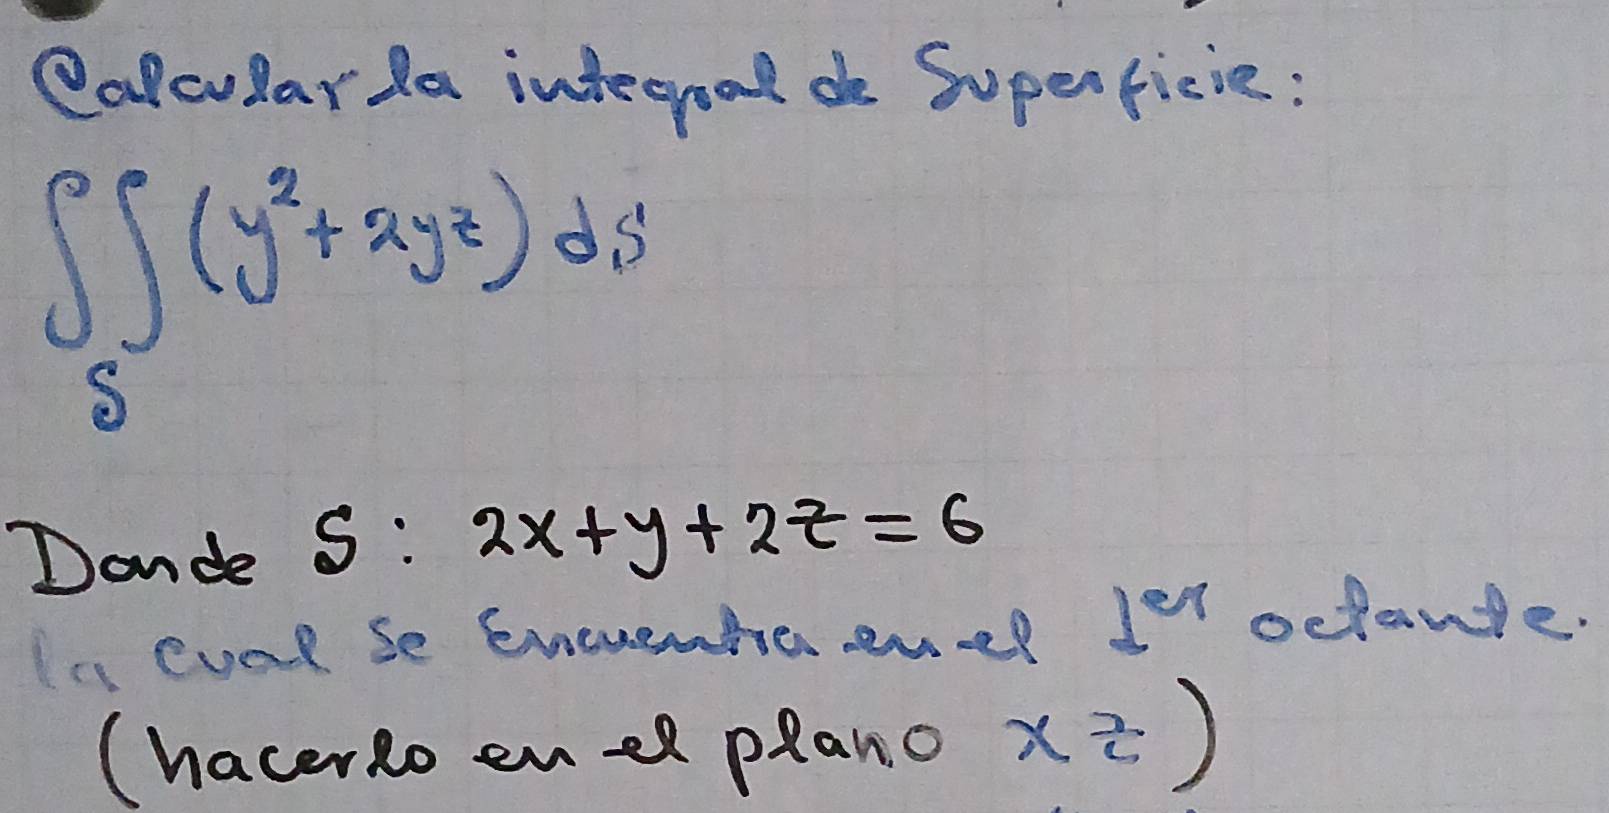 Calcular la integral de Superficie:
∫∫ (y²+2yz) ds
S
Donde S: 2x+y+2z=6
la cual se Encuentra en el 1er octante.
(hacerlo en el plano xz)